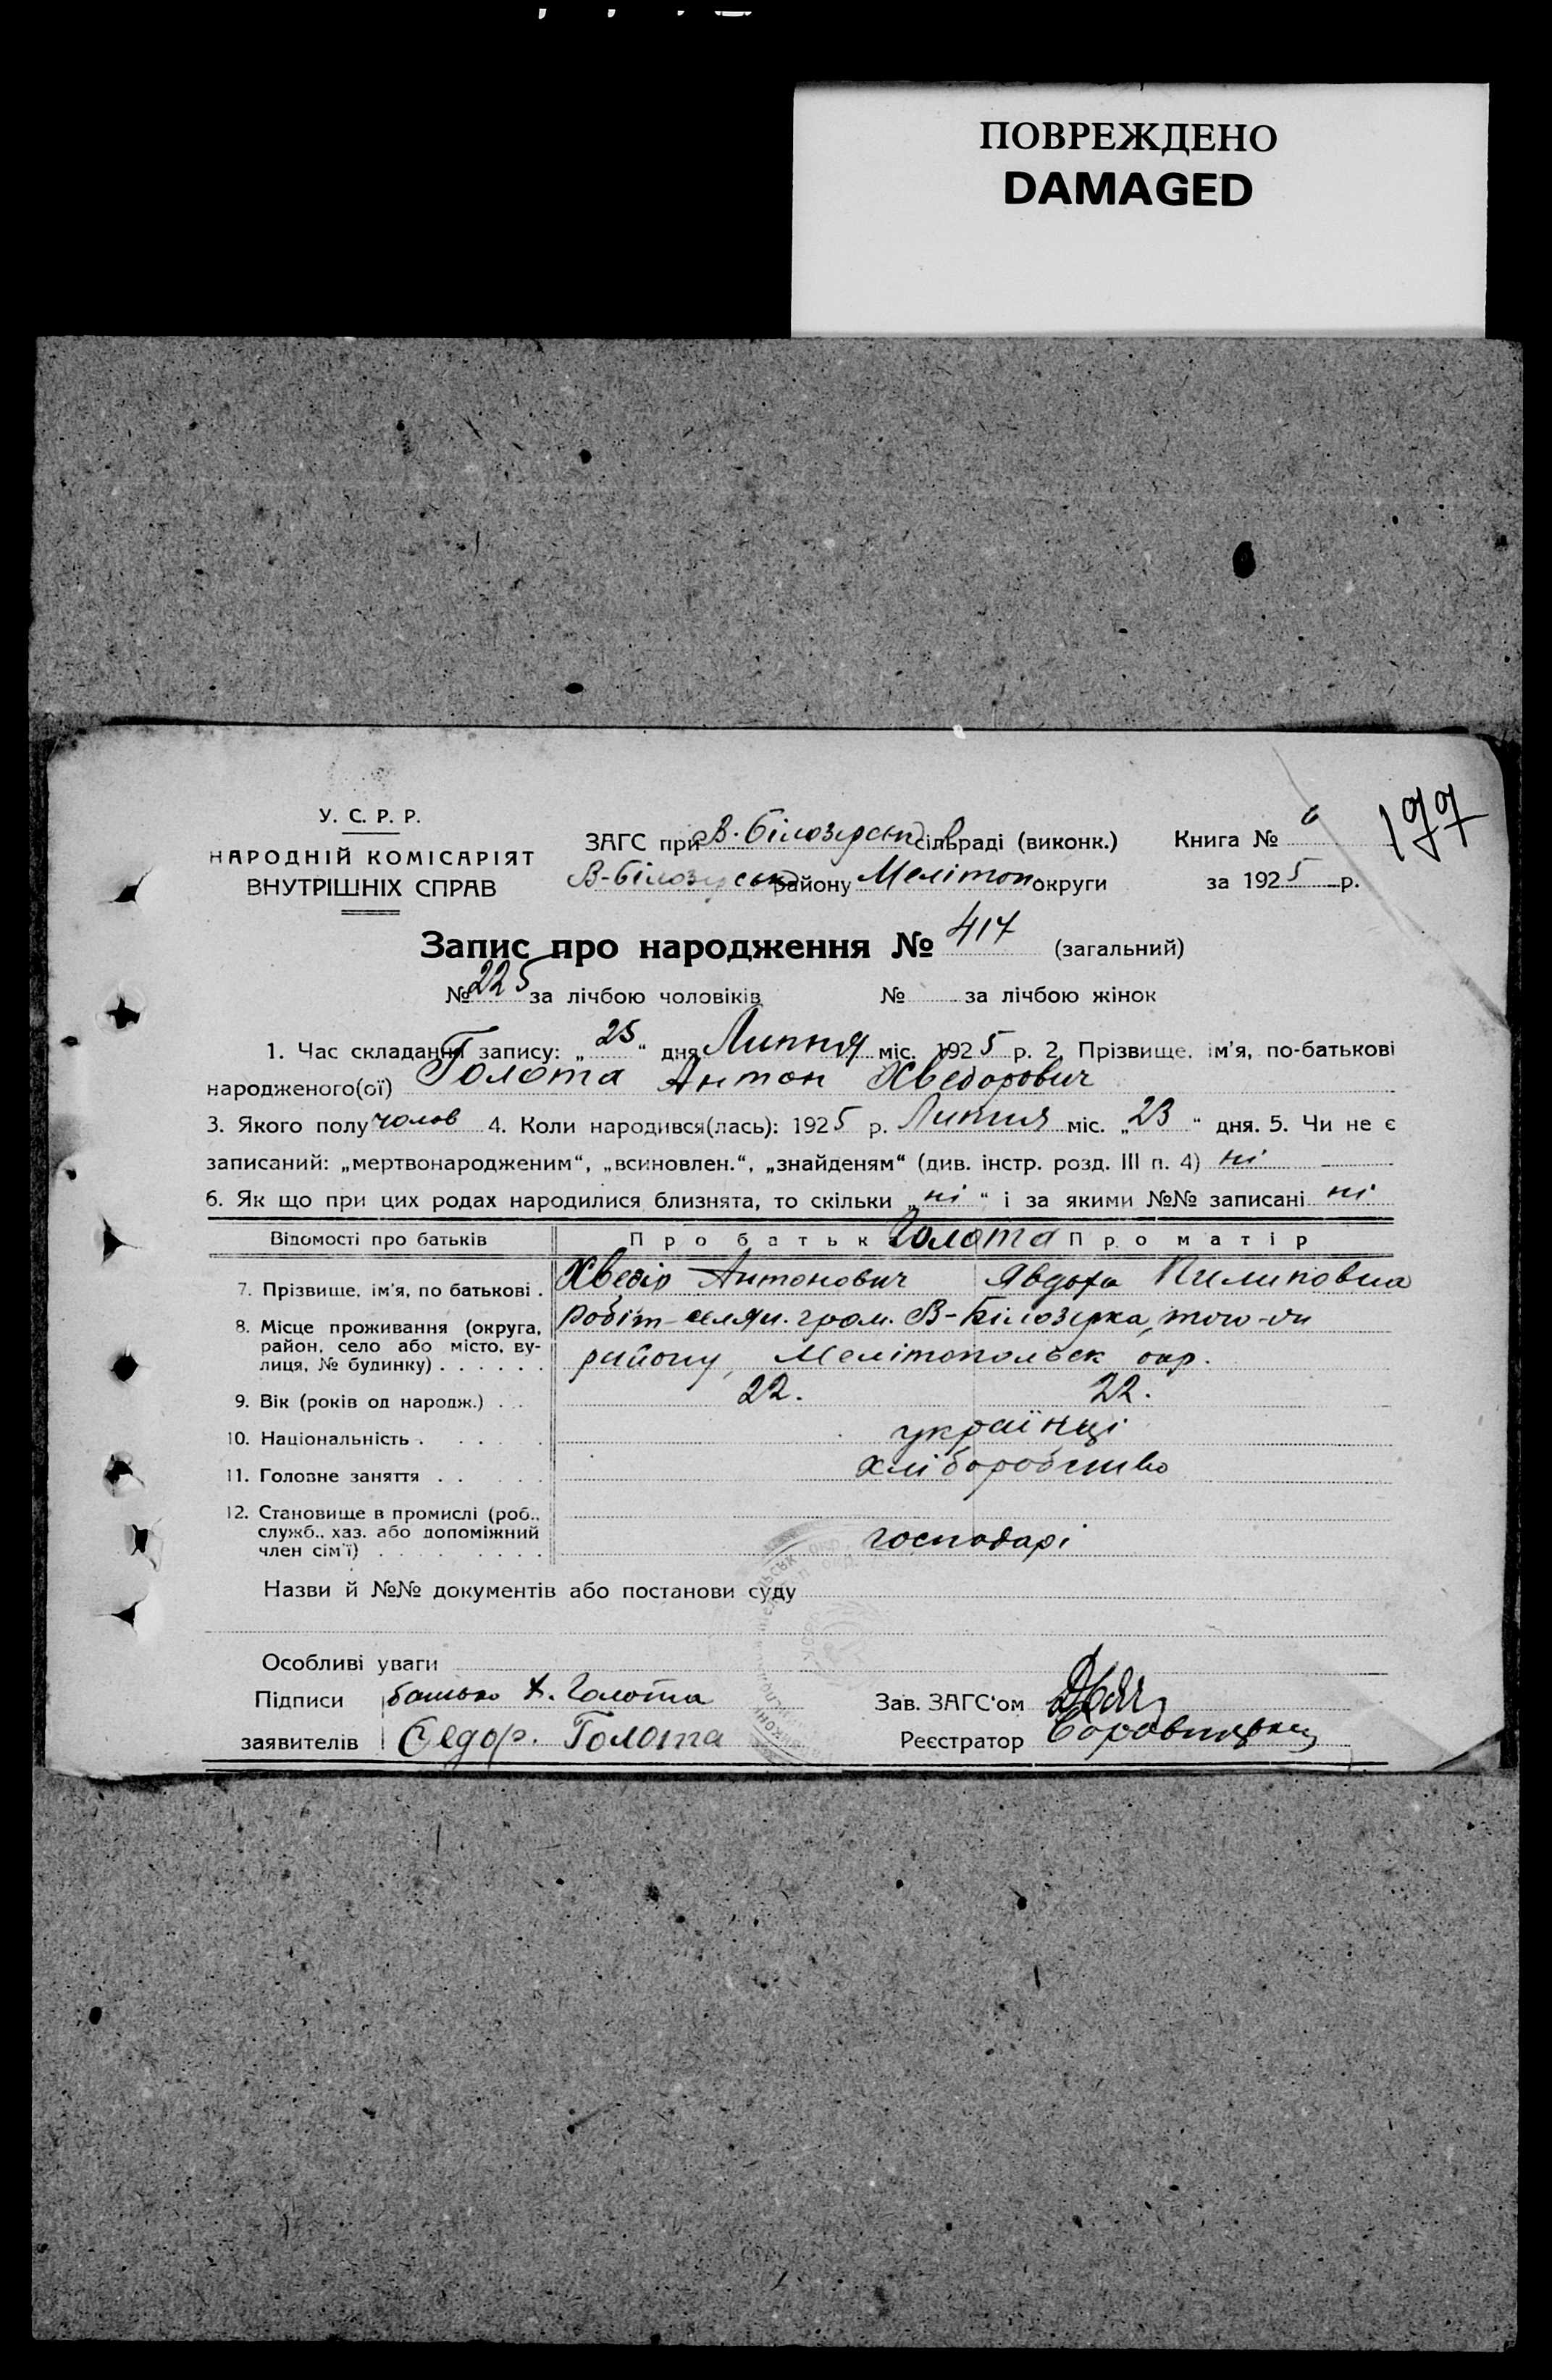 ПОВРЕЖДЕНО
DAMAGED
У. С. Р. Р.
НАРОДНІЙ КОМІСАРІЯТ
ВНУТРІШНІХ СПРАВ
ЗАГС при В-Білозерськ сільраді (виконк.)
В-Білозерськ району Мелітоп округи
Книга № 6
за 1925 р.
177
Запис про народження № 417 (загальний)
№ 225 за лічбою чоловіків № за лічбою жінок
1. Час складання запису: „25“ дня Липня міс. 1925 р. 2. Прізвище, ім'я, по-батькові
народженого(ої) Голота Антон Хведорович
3. Якого полу чолов 4. Коли народився(лась): 1925 р. Липня міс. „23“ дня. 5. Чи не є
записаний: „мертвонародженим“, „всиновлен.“, „знайденям“ (див. інстр. розд. III п. 4) ні
6. Як що при цих родах народилися близнята, то скільки „ні“ і за якими №№ записані ні
Відомості про батьків Про батьк Голота Про матір
7. Прізвище, ім'я, по батькові . Хведір Антонович Явдоха Пилиповна
8. Місце проживання (округа, робіт-селян. гром. В-Білозерка, того-ди
район, село або місто, ву-
лиця, № будинку) . . . . . . району, Мелітопольськ окр.
9. Вік (років од народж.) . . 22. 22.
10. Національність . . . . . українці
11. Головне заняття . . . . . хліборобство
12. Становище в промислі (роб..
служб.. хаз. або допоміжний
член сім'ї) . . . . . . . . господарі
Назви й №№ документів або постанови суду
Особливі уваги
Підписи батько Х. Голота Зав. ЗАГС'ом
заявителів Федор. Голота Реєстратор